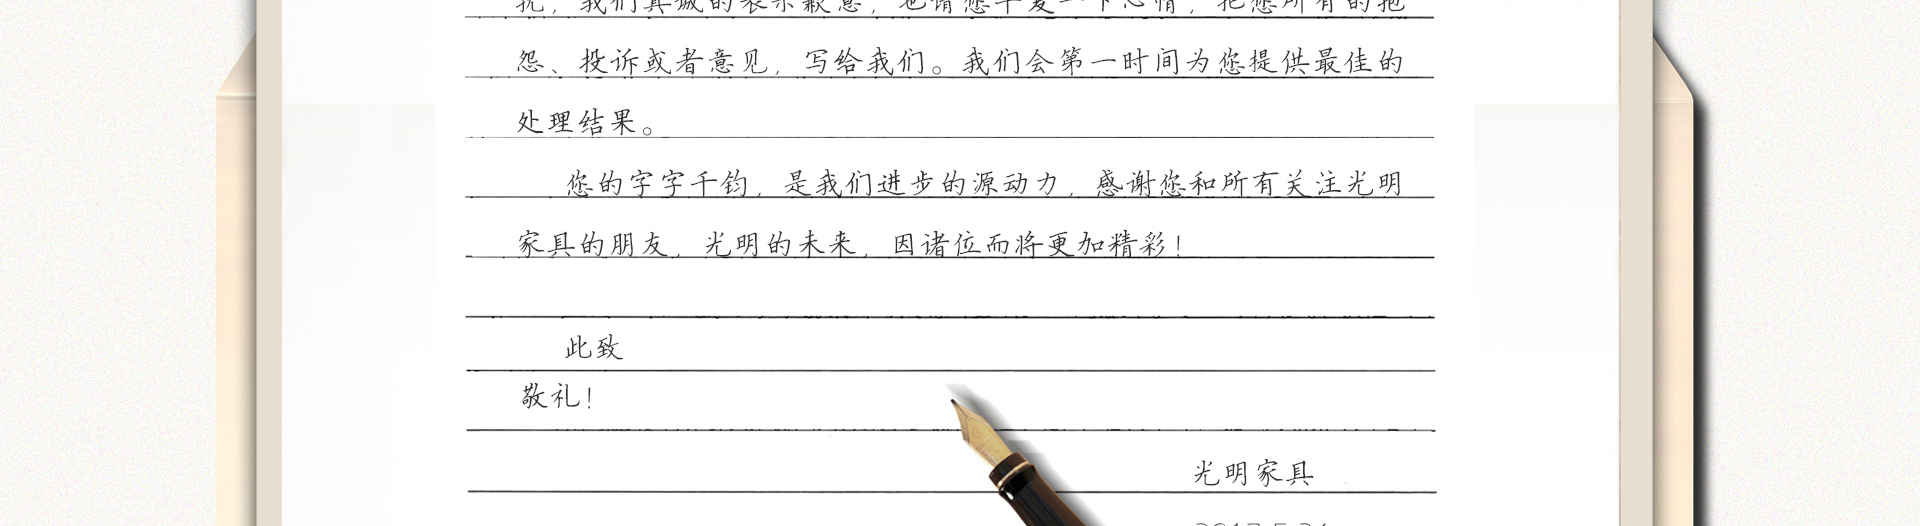 扰，我们真诚的表示歉意，也请您平复一下心情，把您所有的抱
怨、投诉或者意见，写给我们。我们会第一时间为您提供最佳的
处理结果。
您的字字千钧，是我们进步的源动力，感谢您和所有关注光明
家具的朋友，光明的未来，因诸位而将更加精彩！
此致
敬礼！
光明家具